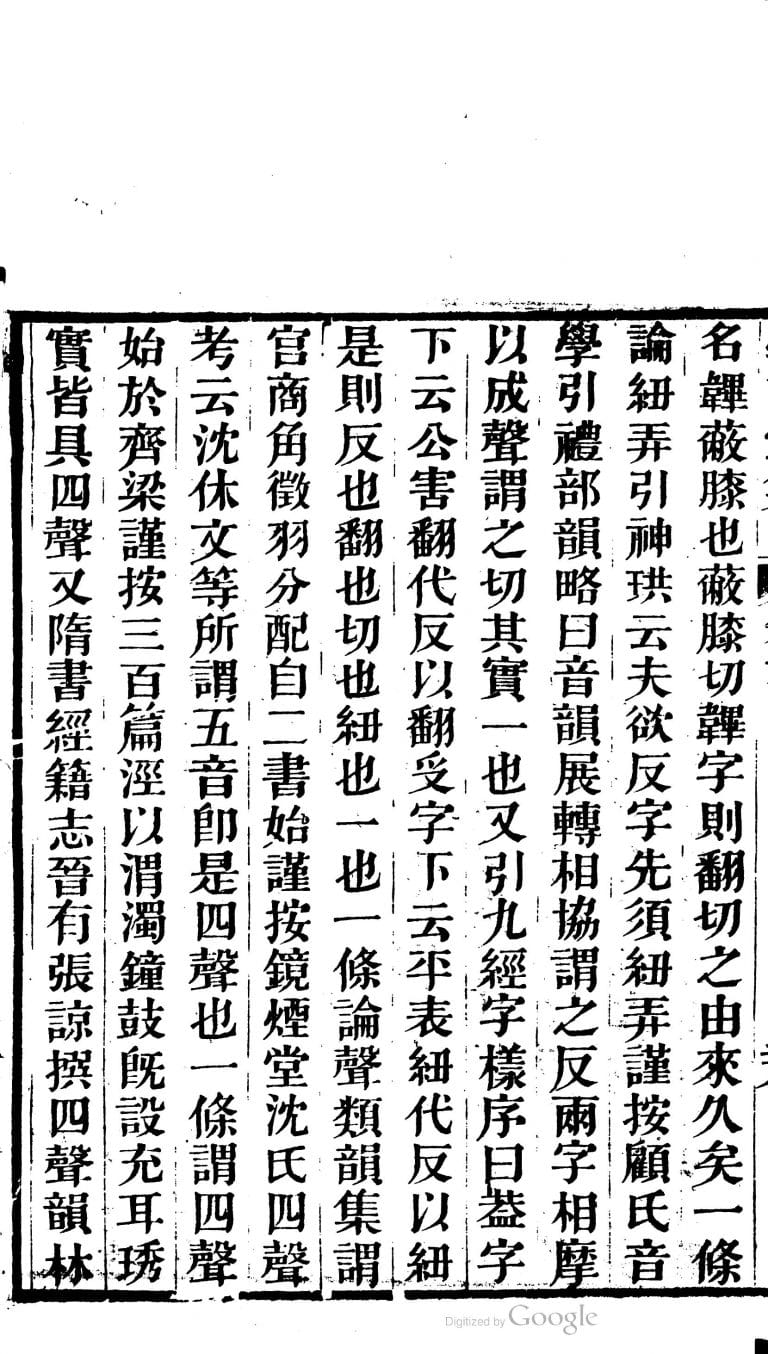 名韠蔽膝也蔽膝切韠字則翻切之由來久矣一條
論紐弄引神珙云夫欲反字先須紐弄謹按顧氏音
學引禮部韻略曰音韻展轉相協謂之反兩字相摩
以成聲謂之切其實一也又引九經字樣序曰葢字
下云公害翻代反以翻受字下云平表紐代反以紐
是則反也翻也切也紐也一也一條論聲類韻集謂
宮商角徵羽分配自二書始謹按鏡煙堂沈氏四聲
考云沈休文等所謂五音卽是四聲也一條謂四聲
始於齊梁謹按三百篇涇以渭濁鐘鼓旣設充耳琇
實皆具四聲又隋書經籍志晉有張諒撰四聲韻林
Digitized by Google